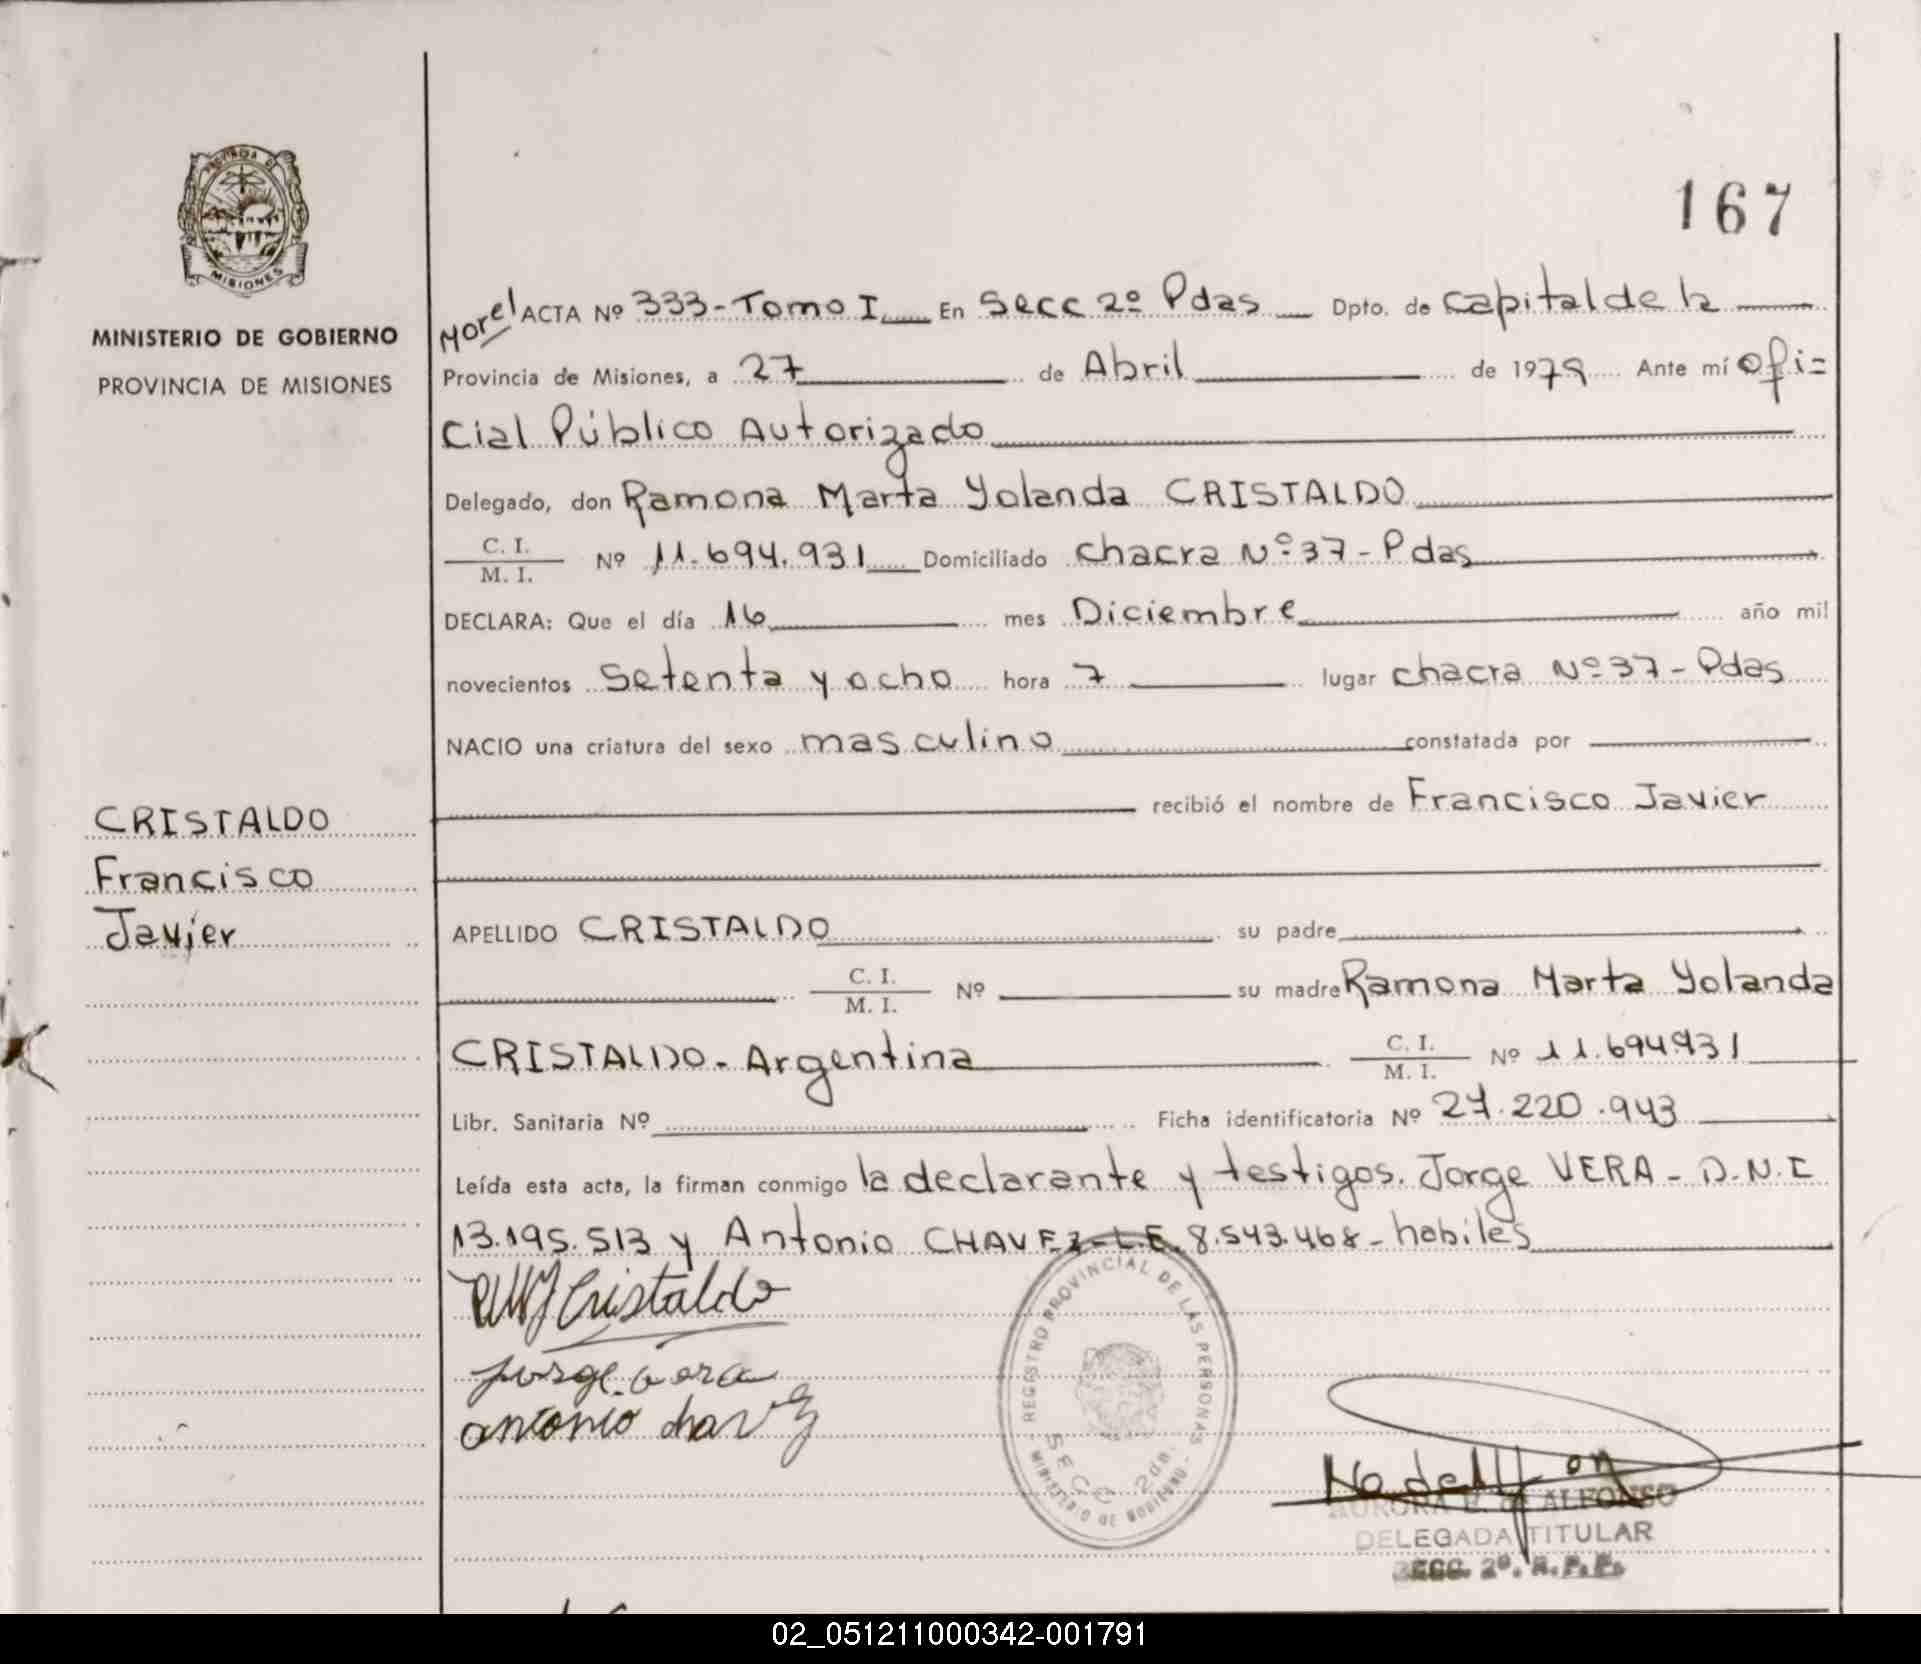 PROVINCIA DE
MISIONES
MINISTERIO DE GOBIERNO
PROVINCIA DE MISIONES
CRISTALDO
Francisco
Javier
167
Morel ACTA Nº 333-Tomo I En Secc 2º Pdas Dpto. de Capital de la
Provincia de Misiones, a 27 de Abril de 1979 Ante mí Ofi=
cial Público Autorizado
Delegado, don Ramona Marta Yolanda CRISTALDO
C. I.
M. I. Nº 11.694.931 Domiciliado Chacra Nº 37-Pdas
DECLARA: Que el día 16 mes Diciembre año mil
novecientos Setenta y ocho hora 7 lugar chacra Nº 37-Pdas
NACIO una criatura del sexo masculino constatada por
recibió el nombre de Francisco Javier
APELLIDO CRISTALDO su padre
C. I.
M. I. Nº su madre Ramona Marta Yolanda
CRISTALDO-Argentina C. I.
M. I. Nº 11.694.931
Libr. Sanitaria Nº Ficha identificatoria Nº 27.220.943
Leída esta acta, la firman conmigo la declarante y testigos. Jorge VERA - D.N.I
13.195.513 y Antonio CHAVEZ-L.E. 8.543.468-habiles
Cristaldo
jorge vera
antonio chavez
REGISTRO PROVINCIAL DE LAS PERSONAS
SECC 2da.
MINISTERIO DE GOBIERNO
AURORA E. de ALFONSO
DELEGADA TITULAR
SECC. 2º. R.P.P.
02_051211000342-001791